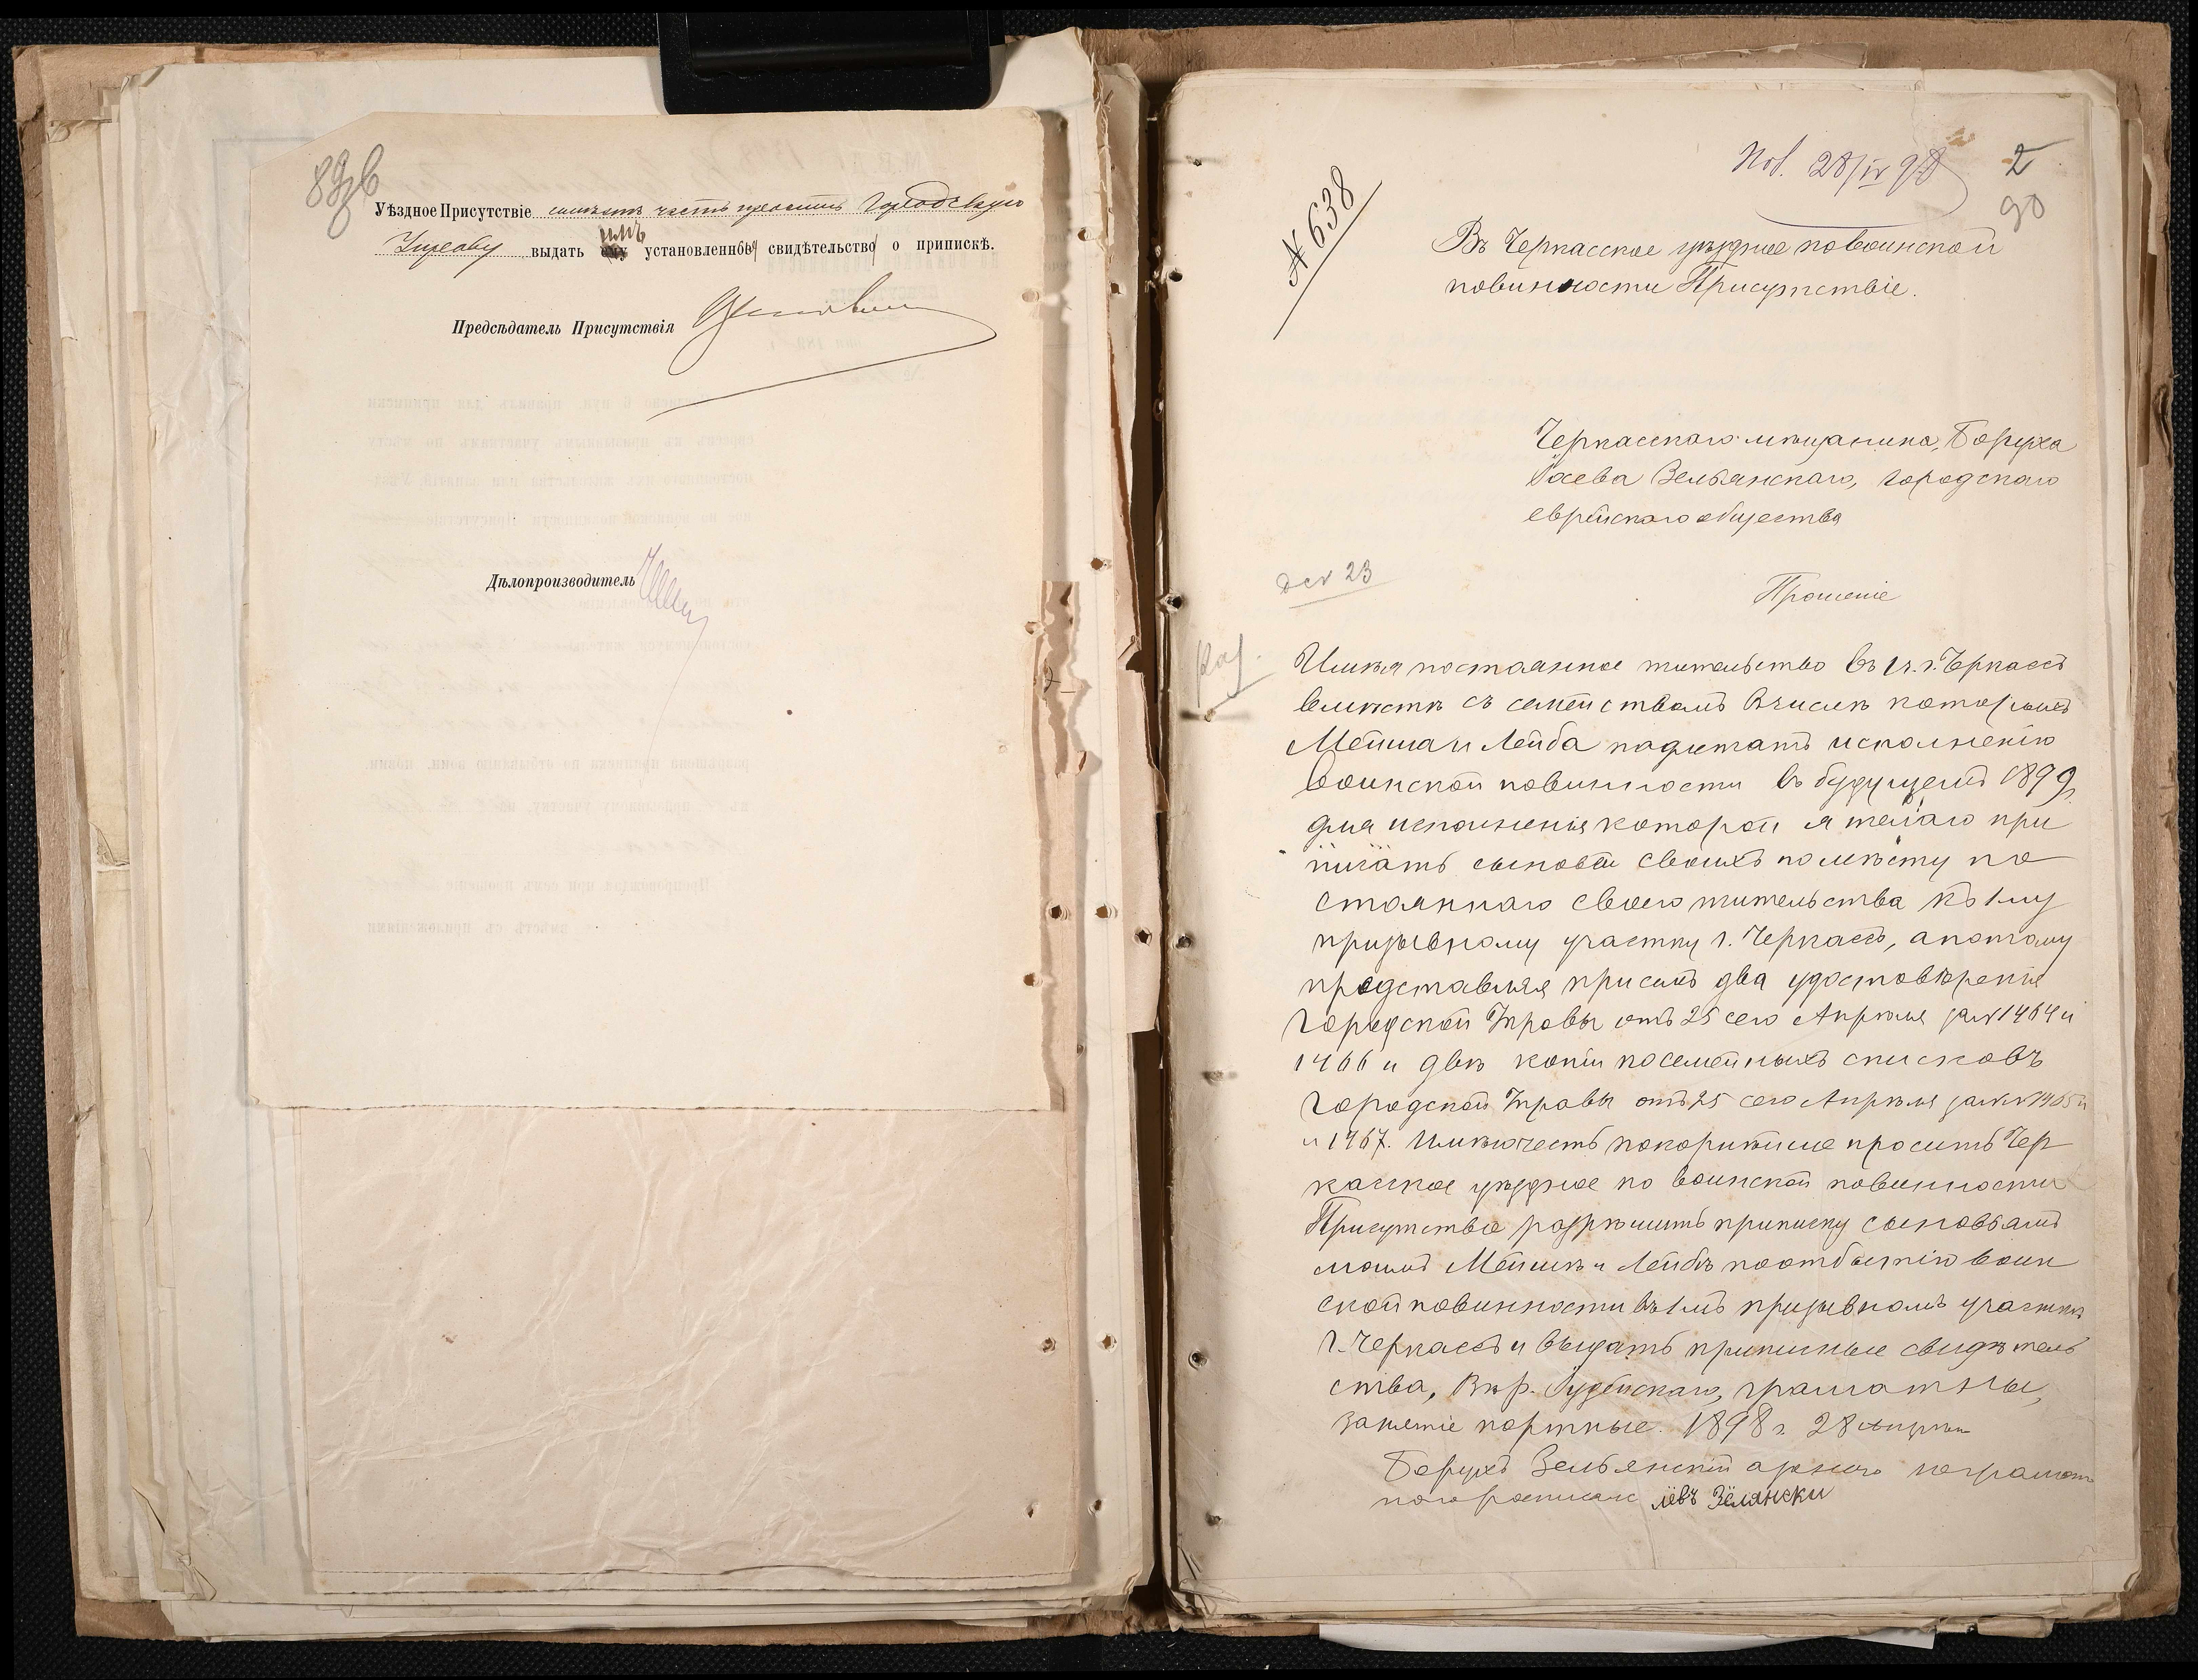 89об
Уѣздное Присутствіе имѣетъ честь просить Городскую
Управу выдать имъ установленное свидѣтельство о припискѣ.
Предсѣдатель Присутствія
Дѣлопроизводитель
Пол. 28/IV 98
2
90
№ 638
Въ Черкасское уѣздное по воинской
повинности Присутствіе.
Черкасскаго мѣщанина, Боруха
Іосева Зельянскаго, городскаго
еврейскаго общества
дел 23
Прошеніе
Имѣя постоянное жительство въ г. Черкассъ
вмѣстѣ съ семействомъ вчислѣ которыхъ
Мейша и Лейба падлежатъ исполненію
воинской повинности въ будущемъ 1899 г.
для исполненія которой я желаю при
писать сыновей своихъ по мѣсту по
стояннаго своего жительства къ 1му
призывному участку г. Черкассъ, а потому
представляя при семъ два удостовѣренія
Городской Управы отъ 25 сего Апрѣля за № 1464 и
1466 и двѣ копіи посемейныхъ списковъ
Городской Управы отъ 25 сего Апрѣля за №№ 1465 и
и 1467. Имѣю честь покорнѣйше просить Чер
касское уѣздное по воинской повинности
Присутствіе разрѣшить приписку сыновьямъ
моимъ Мейшѣ и Лейбѣ по отбытію воин
ской повинности въ 1мъ призывномъ участкѣ
г. Черкассъ и выдать приписные свидѣтель
ства, Вѣр. Іудейскаго, грамотны,
занятіе портные. 1898 г. 28 Апрѣля
Борухъ Зельянскій а по его неграмотн
ного росписался Лёвъ Зёлянски